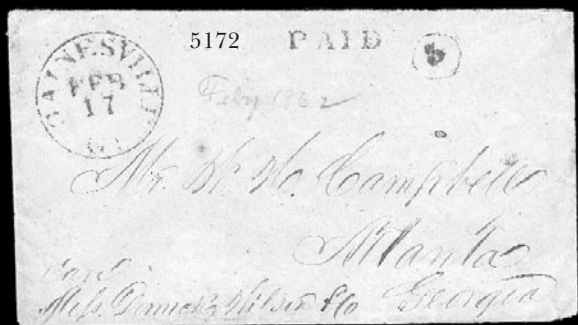 5172 PAID 5
GAINESVILLE
FEB
17
GA
Feby 1862
Mr. W. H. Campbell
Atlanta
Georgia
Care
Mess. & Wilson & Co